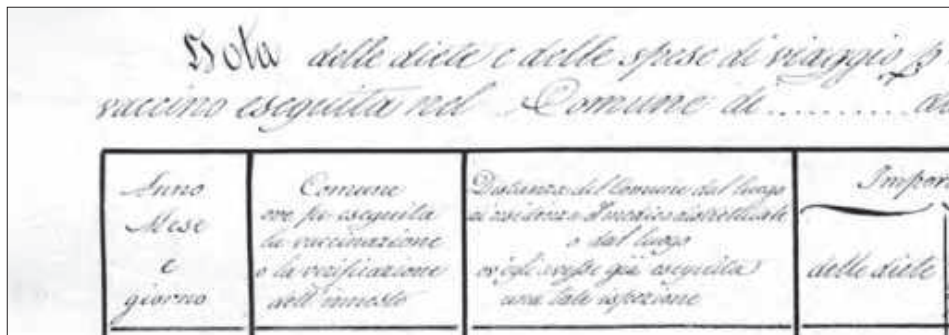 Nota delle diete e delle spese di viaggio p
vaccino eseguita nel Comune di ......... a
Anno
Mese
e
giorno
Comune
ove fu eseguita
la vaccinazione
o la verificazione
dell'innesto
Distanza del Comune dal luogo
di residenza del medico distrettuale
o dal luogo
ov'egli avesse già eseguita
una tale ispezione
Impor
delle diete